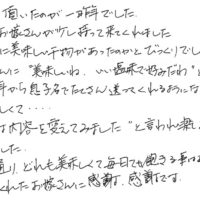 頂いたのが一昨年でした.
お嫁さんが少し持って来てくれました
に美味しい干物があったのかとびっくりでし
んに"美味しいね、いい塩味で好みだわ"と
年から息子名でたくさん送ってくれるようにな
しくて・・・・
は内容を変えてみました"と言われ
した.
通り、どれも美味しくて毎日でも飽きる事は
くれたお嫁さんに感謝、感謝です.